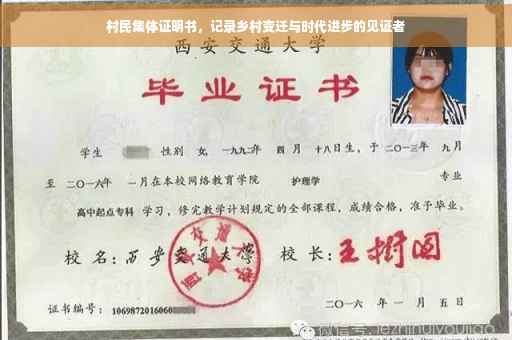 村民集体证明书，记录乡村变迁与时代进步的见证者
西安交通大学
毕业证书
学生 性别 女，一九九二年 四 月 十八日生，于二〇一三年 九月
至 二〇一六年 一月在本校网络教育学院 护理学 专业
高中起点专科 学习，修完教学计划规定的全部课程，成绩合格，准予毕业。
校 名：西安交通大学 校 长：王树国
证书编号：1069872016060
二〇一六 年 一 月 五 日
微信号: jezhihuiyoujiao